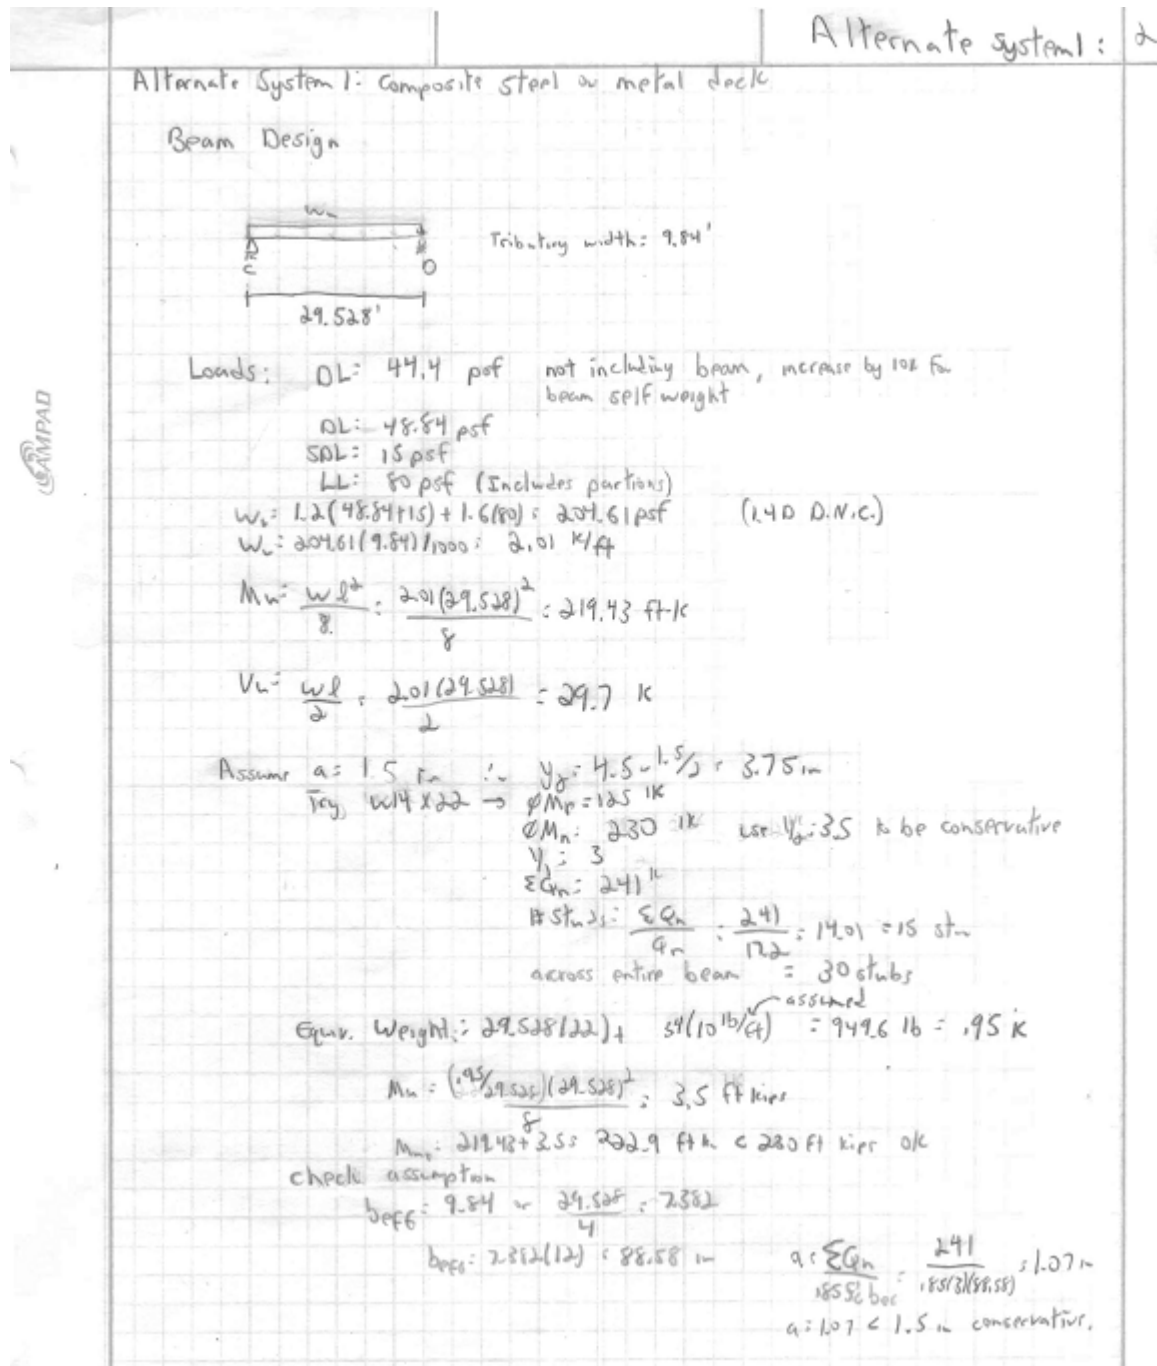 Alternate System 1: 2
Alternate System 1: Composite Steel on metal deck
Beam Design
Wu
Tributary width: 9.84'
C D
29.528'
Loads: DL: 44.4 psf not including beam, increase by 10% for
beam self weight
DL: 48.84 psf
SDL: 15 psf
LL: 80 psf (Includes partions)
Wu: 1.2(48.84+15) + 1.6(80) = 204.61 psf (1.4D D.N.C.)
Wu: 204.61(9.84)/1000 = 2.01 k/ft
Mu = wl²/8 = 2.01(29.528)²/8 = 219.43 ft-k
Vu = wl/2 = 2.01(29.528)/2 = 29.7 k
Assume a = 1.5 in ∴ y2 = 4.5 - 1.5/2 = 3.75 in
Try W14 x 22 → ØMp = 125 'k
ØMn = 230 'k use Y2 = 3.5 to be conservative
Y1 = 3
ΣQn = 241 k
# Studs = ΣQn/Qn = 241/17.2 = 14.01 = 15
across entire beam = 30 stubs
assumed
Equiv. Weight: 29.528(22) + (10 lb/ft) = 949.6 lb = .95 k
Mu = (.95/29.528)(29.528)²/8 = 3.5 ft kips
Mu = 219.43 + 3.5 = 222.9 ft k < 230 ft kips ok
check assumption
beff = 9.84 or 29.528/4 = 7.382
beff = 7.382(12) = 88.58 in
a = ΣQn/.85f'c beff = 241/.85(3)(88.58) = 1.07 in
a = 1.07 < 1.5 in conservative.
CAMPAD